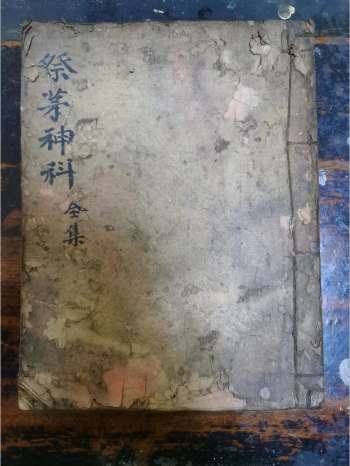 祭茅神科全集